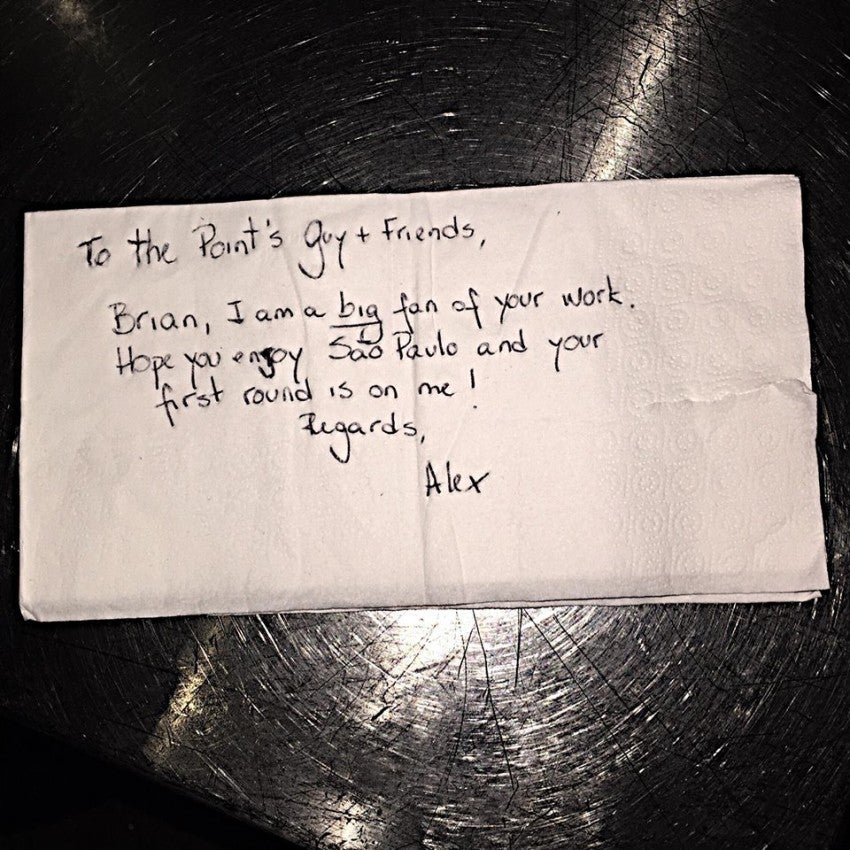 To the Point's guy + Friends,
Brian, I am a big fan of your work.
Hope you enjoy São Paulo and your
first round is on me!
Regards,
Alex